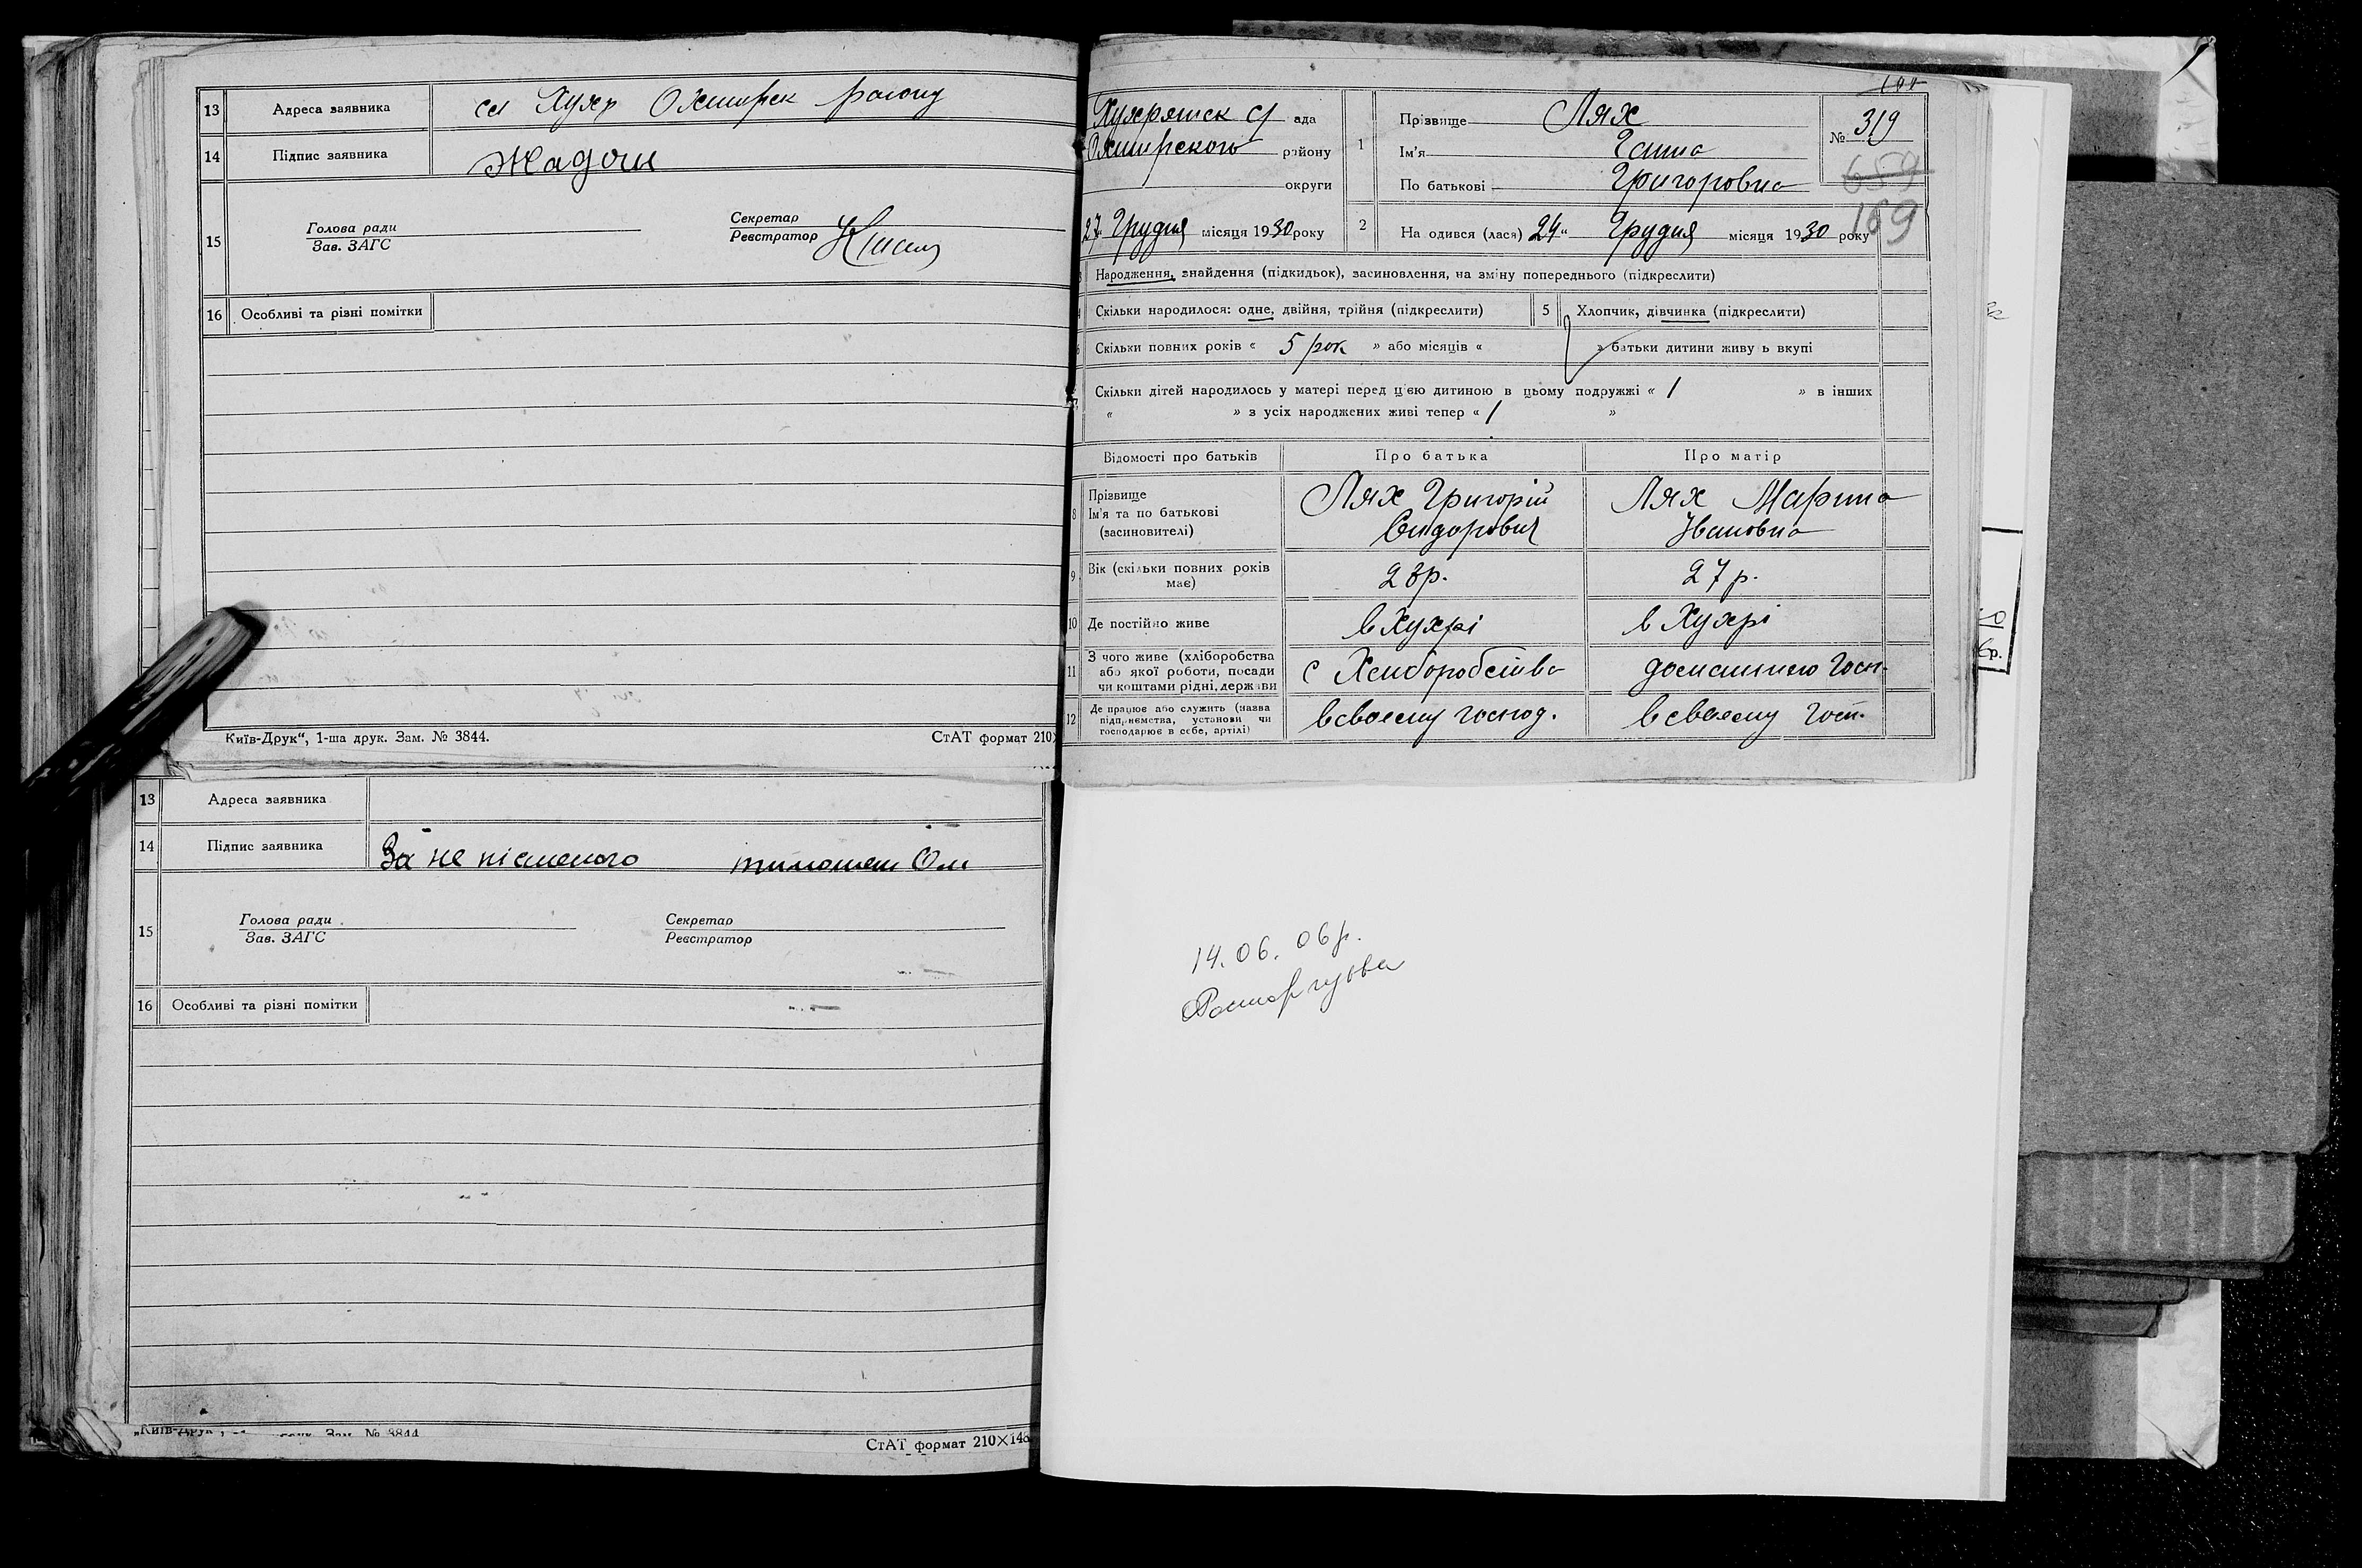 13 Адреса заявника сл Хухр Охтирск району
14 Підпис заявника Жадан
15 Голова ради
Зав. ЗАГС
Секретар
Реєстратор
16 Особливі та різні помітки
Київ-Друк“, 1-ша друк. Зам. № 3844.
СтАТ формат 210
13 Адреса заявника
14 Підпис заявника За не písменого
15 Голова ради
Зав. ЗАГС
Секретар
Реєстратор
16 Особливі та різні помітки
Зам. № 3844
СтАТ формат 210×148
ада
Охтирского району
округи
27 Грудня місяця 1930 року
1 Прізвище Лях
Ім'я Ганна
По батькові Григоровна
№ 319
659
169
2 На одився (лася) 24“ Грудня місяця 1930 року
Народження, знайдення (підкидьок), засиновлення, на зміну попереднього (підкреслити)
Скільки народилося: одне, двійня, трійня (підкреслити)
5 Хлопчик, дівчинка (підкреслити)
Скільки повних років « 5 рок » або місяців « » батьки дитини живу ь вкупі
Скільки дітей народилось у матері перед цією дитиною в цьому подружжі « 1 » в інших
« » з усіх народжених живі тепер « 1 »
Відомості про батьків Про батька Про матір
8 Прізвище
Ім'я та по батькові
(засиновителі)
Лях Григорій
Сидорович
Лях Марина
Ивановна
9 Вік (скільки повних років
має)
23р.
27р.
10 Де постійно живе в Хухрі в Хухрі
11 З чого живе (хліборобства
або якої роботи, посади
чи коштами рідні, держави
с Хлиборобства
домашнею Госп.
12 Де працює або служить (назва
підприємства, установи чи
господарює в себе, артілі)
в своему господ.
в своему госп.
14.06.06р.